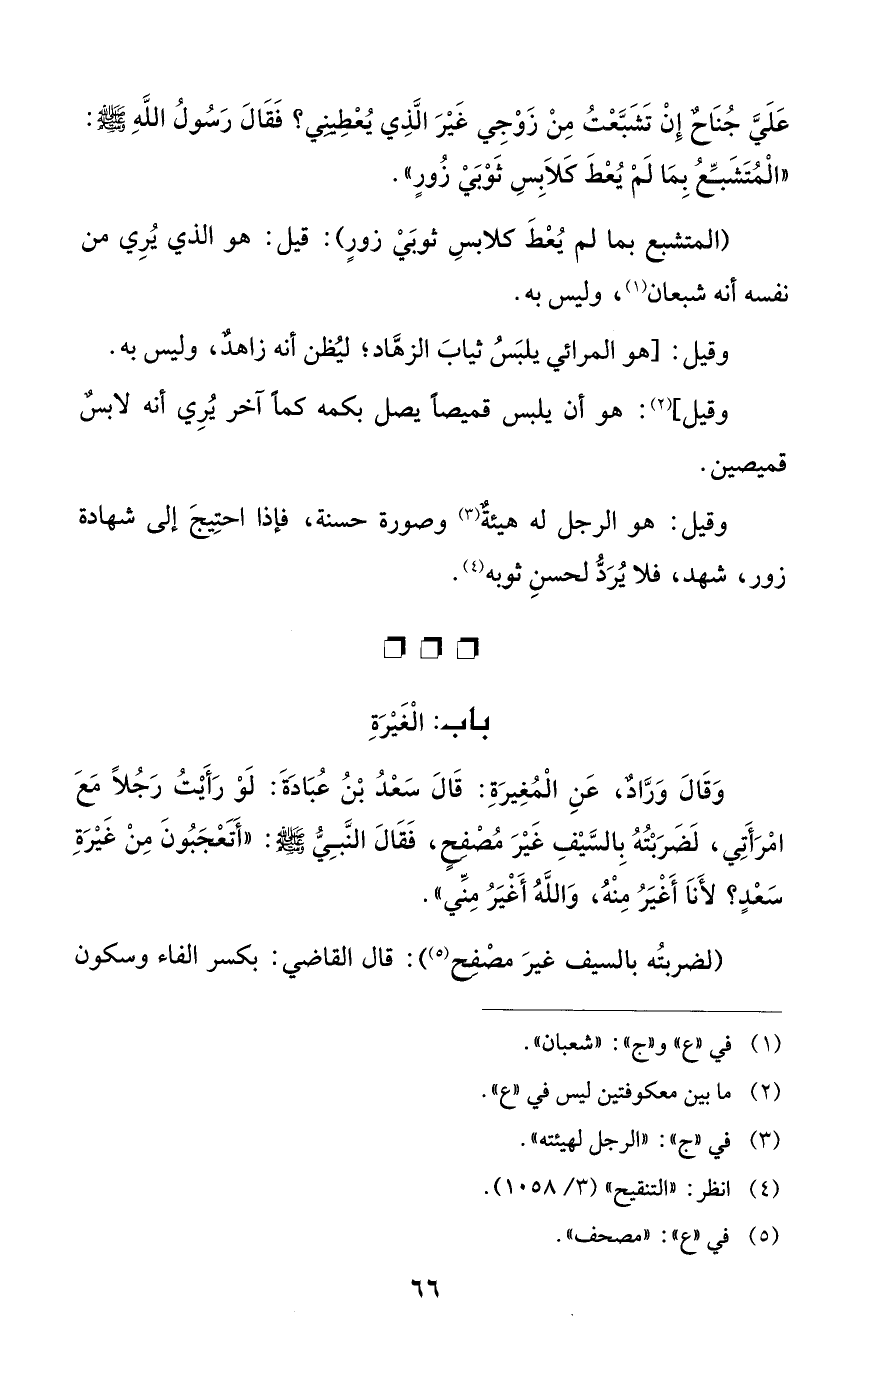 عَلَيَّ جُنَاحٌ إِنْ تَشَبَّعْتُ مِنْ زَوْجِي غَيْرَ الَّذِي يُعْطِينِي؟ فَقَالَ رَسُولُ اللَّهِ ﷺ:
«الْمُتَشَبِّعُ بِمَا لَمْ يُعْطَ كَلَابِسِ ثَوْبَيْ زُورٍ».
(المتشبع بما لم يُعْطَ كلابسِ ثوبَيْ زورٍ): قيل: هو الذي يُرِي من
نفسه أنه شبعان(١)، وليس به.
وقيل: [هو المرائي يلبَسُ ثيابَ الزهَّاد؛ ليُظن أنه زاهدٌ، وليس به.
وقيل](٢): هو أن يلبس قميصاً يصل بكمه كماً آخر يُرِي أنه لابسٌ
قميصين.
وقيل: هو الرجل له هيئةٌ(٣) وصورة حسنة، فإذا احتِيجَ إلى شهادة
زور، شهد، فلا يُرَدُّ لحسنِ ثوبه(٤).
باب: الْغَيْرَةِ
وَقَالَ وَرَّادٌ، عَنِ الْمُغِيرَةِ: قَالَ سَعْدُ بْنُ عُبَادَةَ: لَوْ رَأَيْتُ رَجُلاً مَعَ
امْرَأَتِي، لَضَرَبْتُهُ بِالسَّيْفِ غَيْرَ مُصْفِحٍ، فَقَالَ النَّبِيُّ ﷺ: «أَتَعْجَبُونَ مِنْ غَيْرَةِ
سَعْدٍ؟ لأَنَا أَغْيَرُ مِنْهُ، وَاللَّهُ أَغْيَرُ مِنِّي».
(لضربتُه بالسيف غيرَ مصْفِح(٥)): قال القاضي: بكسر الفاء وسكون
(١) في «ع» و«ج»: «شعبان».
(٢) ما بين معكوفتين ليس في «ع».
(٣) في «ج»: «الرجل لهيئته».
(٤) انظر: «التنقيح» (٣/ ١٠٥٨).
(٥) في «ع»: «مصحف».
٦٦